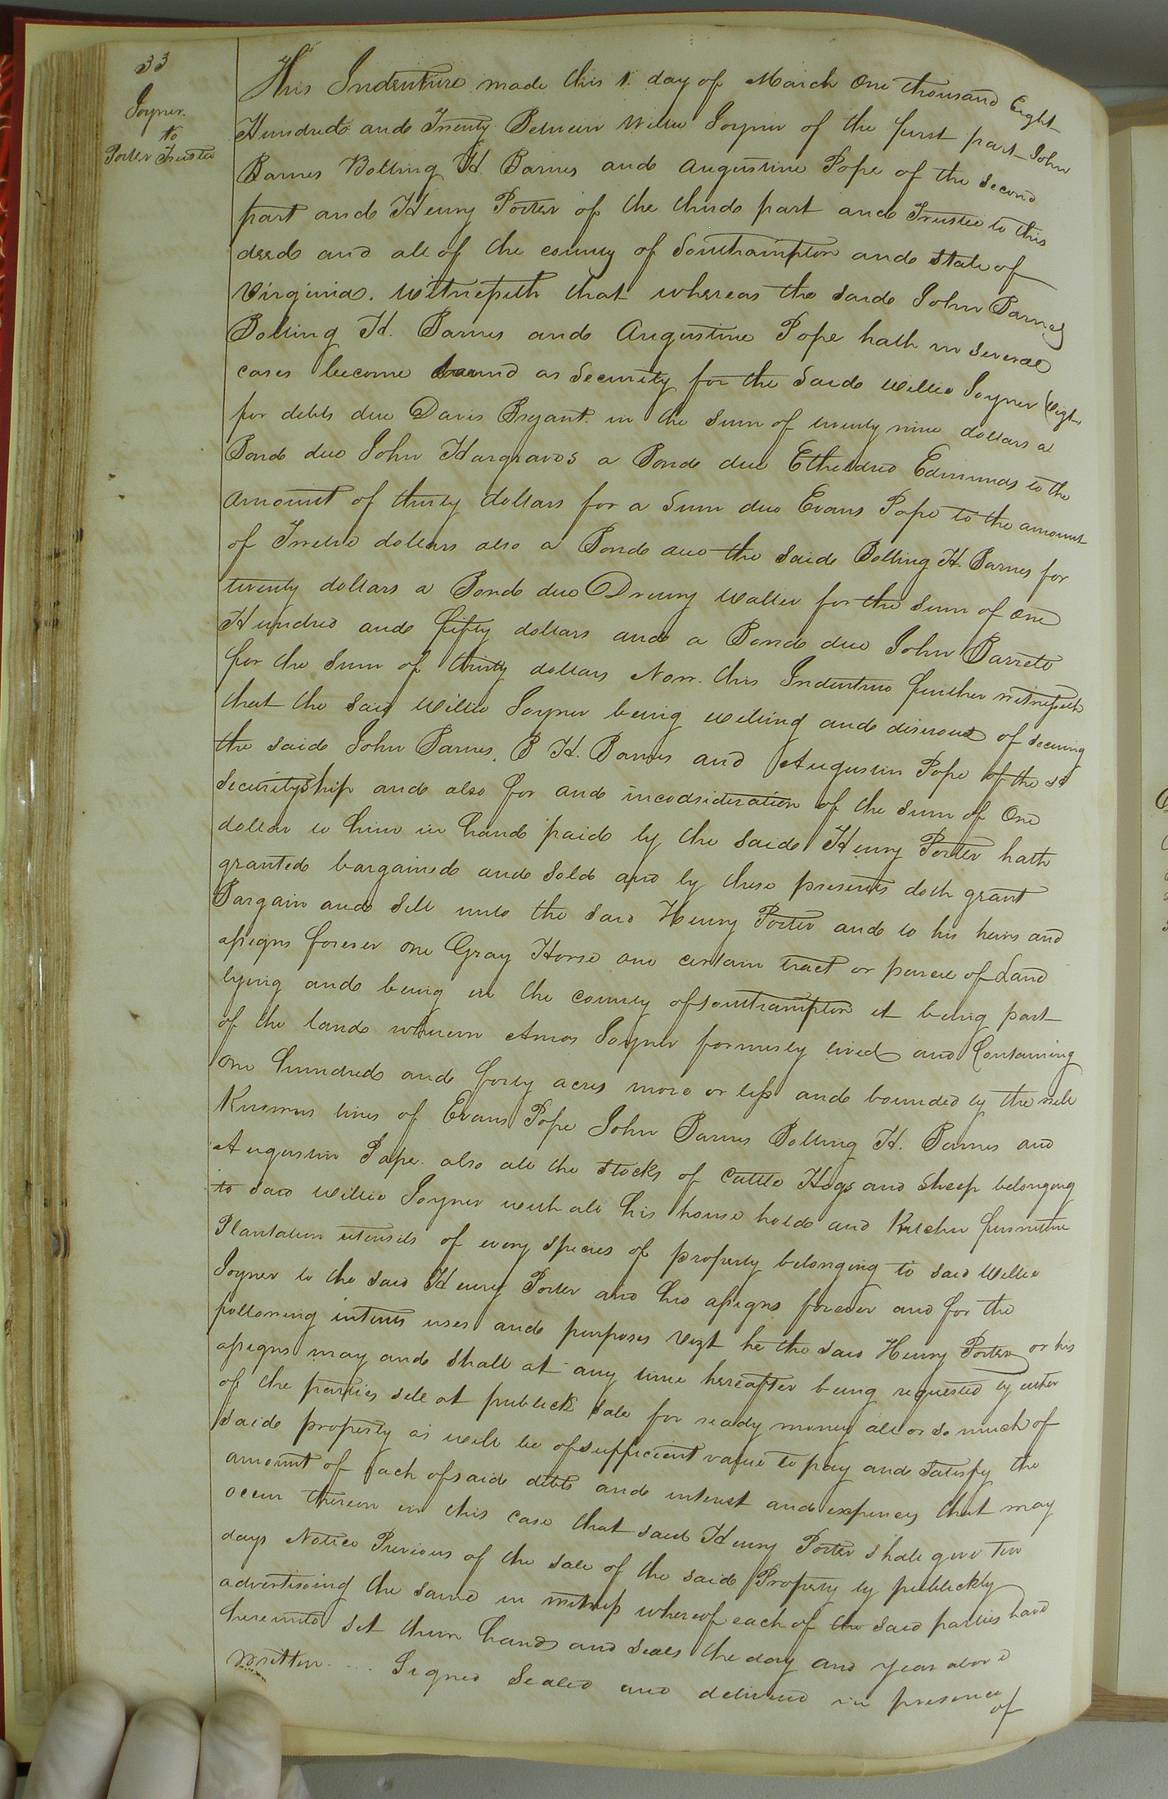 33
Joyner
to
Porter Trustee
This Indenture made this 1 day of March One thousand Eight
Hundred and Twenty Between Willie Joyner of the first part John
Barnes Bolling H Barnes and Augustine Pope of the second
part and Henry Porter of the third part and Trustee to this
deed and all of the county of Southampton and state of
Virginia. Witnesseth that whereas the said John Barnes
Bolling H. Barnes and Augustine Pope hath in several
cases become bound as Security for the Said Willie Joyner (Vizt
for debts due Davis Bryant in the sum of twenty nine dollars a
Bond due John Hargraves a Bond due Etheldred Edmunds to the
amount of thirty dollars for a Sum due Evans Pope to the amount
of Twelve dollars also a Bond due the said Bolling H. Barnes for
twenty dollars a Bond due Drewry Waller for the Sum of One
Hundred and fifty dollars and a Bond due John Barrett
for the Sum of thirty dollars Now this Indenture further witnesseth
that the said Willie Joyner being willing and disirous of securing
the said John Barnes, B H. Barnes and Augustin Pope of the sd
securityship and also for and inconsideration of the sum of One
dollar to him in hand paid by the said Henry Porter hath
granted bargained and Sold and by these presents doth grant
Bargain and Sell unto the said Henry Porter and to his heirs and
assigns forever one Gray Horse one certain tract or parcel of Land
lying and being in the county of Southampton it being part
of the land wherein Amos Joyner formerly lived and Containing
one hundred and forty acres more or less and bounded by the well
Knowns lines of Evans Pope John Barnes Bolling H. Barnes and
Augustin Pope. also all the stocks of Cattle Hogs and Sheep belonging
to said Willie Joyner with all his house hold and Kitchen furniture
Plantation utensils of every species of property belonging to said Willie
Joyner to the said Henry Porter and his assigns forever and for the
following intents uses and purposes Vizt he the said Henry Porter or his
assigns may and shall at any time hereafter being requested by either
of the parties sell at publick sale for ready money all or so much of
said property as will be of sufficient value to pay and satisfy the
amount of each of said debts and interest and expences that may
occur thereon in this case that said Henry Porter shall give ten
days Notice Previous of the sale of the said Property by publickly
advertiseing the same in witness whereof each of the said parties have
hereunto set their hands and seals the day and year above
written .... Signed Sealed and delivered in presence
of